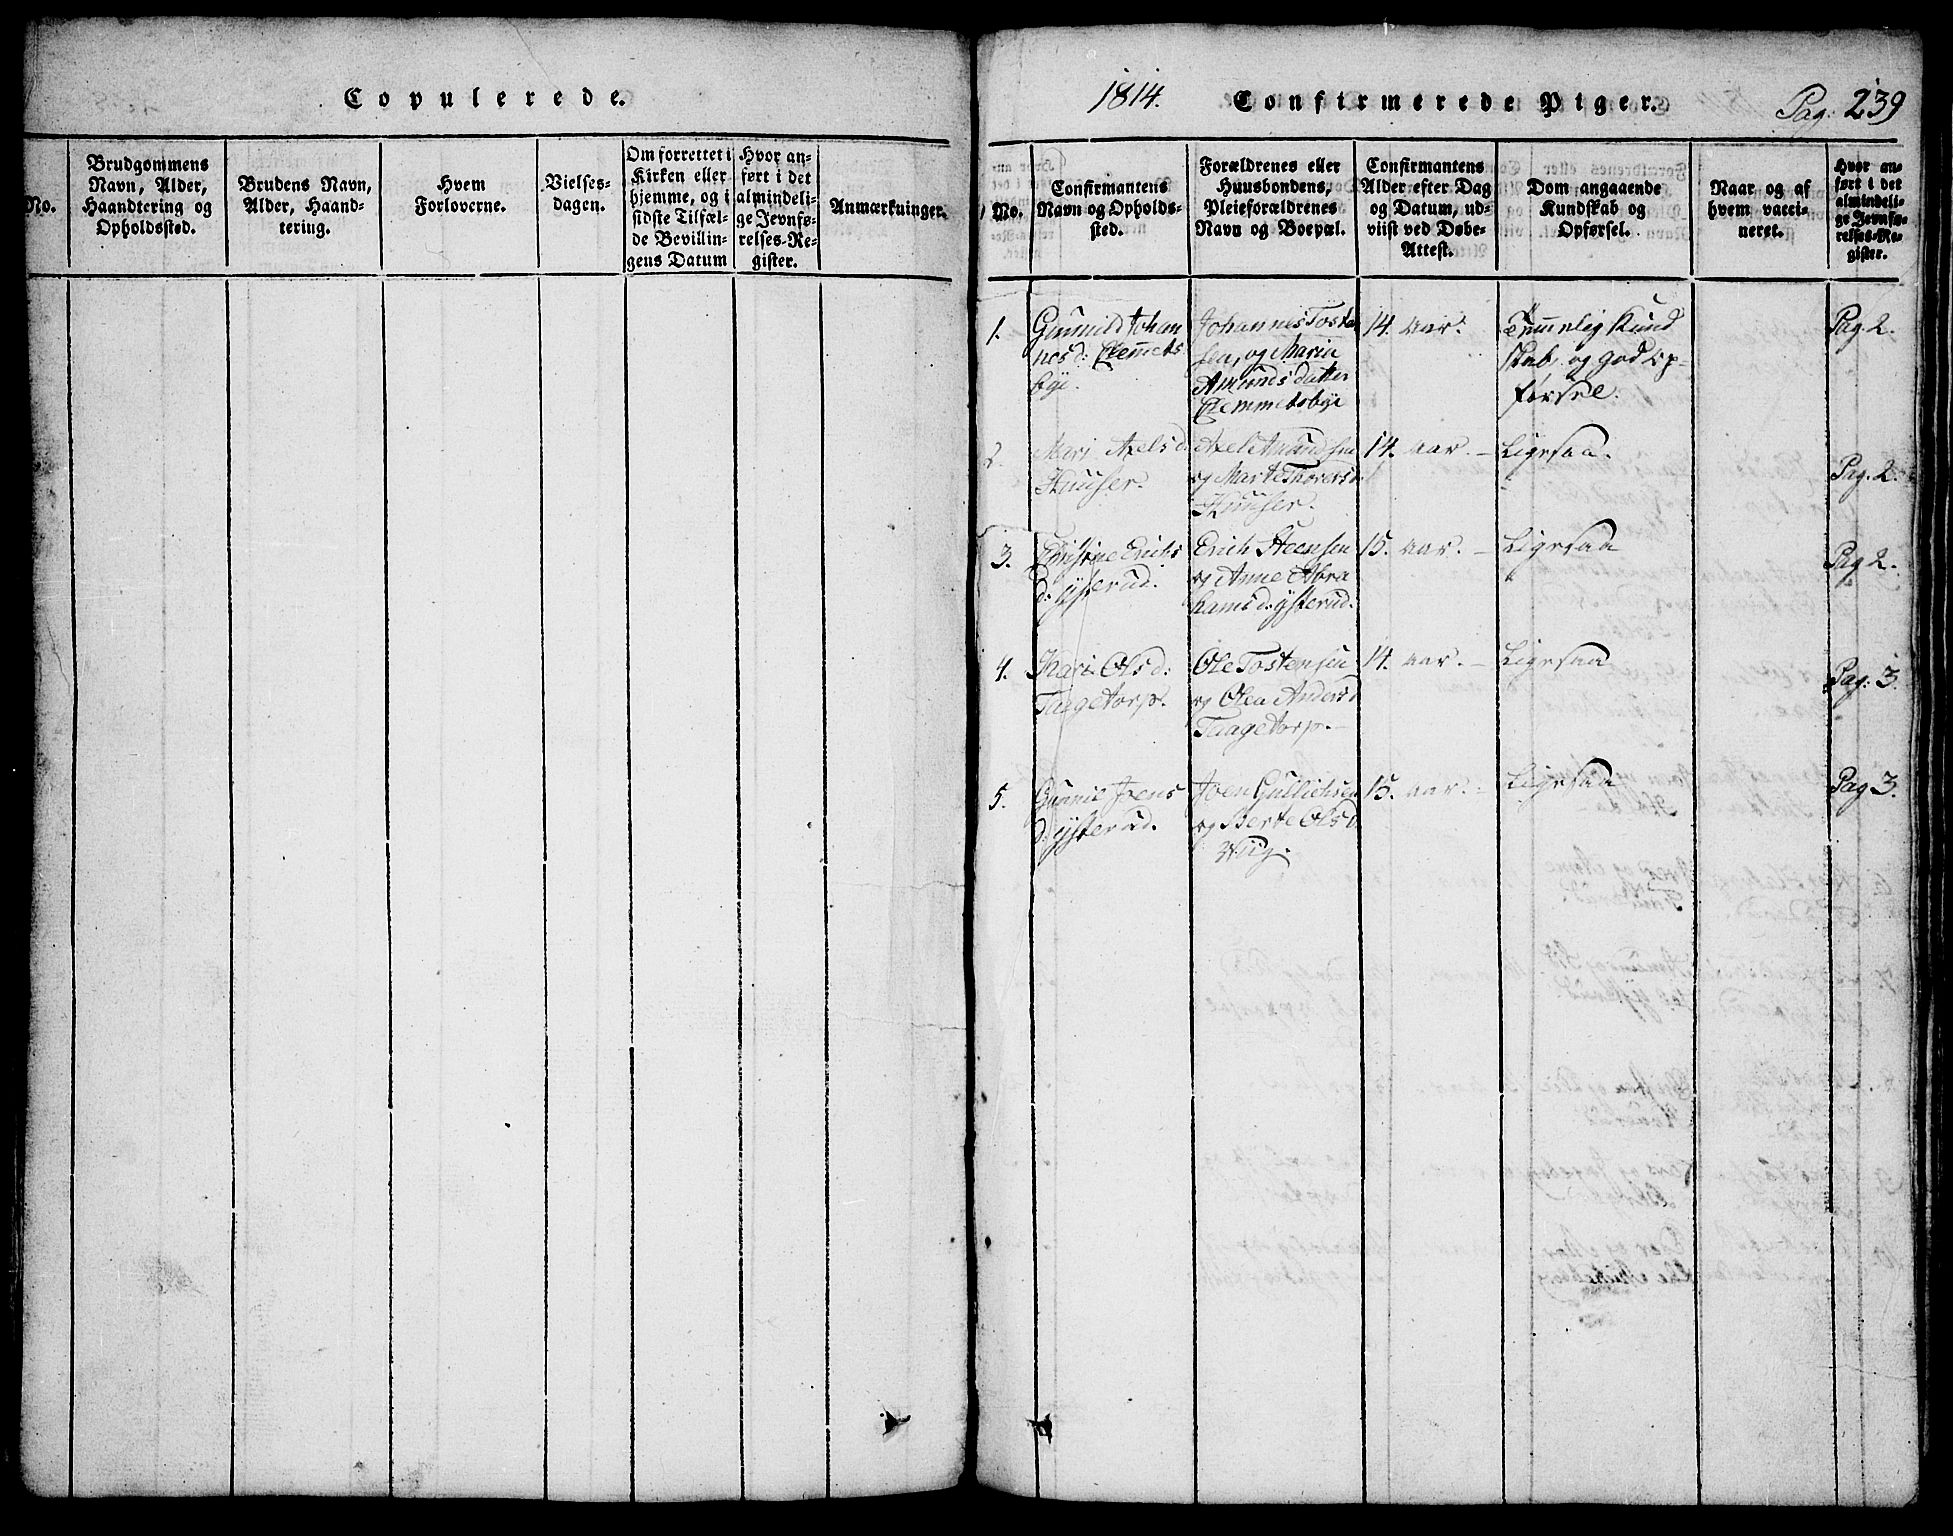 Copulerede.
No.
Brudgommens
Navn, Alder,
Haandtering og
Opholdssted.
Brudens Navn,
Alder, Haand-
tering.
Hvem
Forloverne.
Vielses-
dagen.
Om forrettet i
Kirken eller
hjemme, og i
sidste Tilfæl-
de Bevillin-
gens Datum
Hvor an-
ført i det
almindeli-
ge Jevnfø-
relses-Re-
gister.
Anmærkninger.
1814.
Confirmerede Piger.
Pag: 239
No.
Confirmantens
Navn og Opholds-
sted.
Forældrenes eller
Huusbondens,
Pleieforældrenes
Navn og Boepæl.
Confirmantens
Alder efter Dag
og Datum, ud-
viist ved Døbe-
Attest.
Dom angaaende
Kundskab og
Opførsel.
Naar og af
hvem vacci-
neret.
Hvor an-
ført i det
almindeli-
ge Jevnfø-
relses-Re-
gister.
1.
Gunnild Johan
nesd: Clemets
bye.
Johannes Tosten
sen, og Maria
Amundsdatter
Clemmetsbye
14. aar.
Temmelig Kund
skab og god Op-
førsel.
Pag. 2.
2.
Mari Axelsd.
Huuser.
Axel Amundsen
og Marte Thoresd.
Huuser.
14. aar. –
Ligesaa.
Pag. 2.
3.
Christine Erichs
d: Ysterud.
Erich Steensen
og Anne Abra
hamsd: Ysterud.
15. aar. –
Ligesaa
Pag 2.
4.
Kari Olsd:
Taagetorp.
Ole Tostensen
og Olea Andersd
Taagetorp. –
14. aar. –
Ligesaa
Pag: 3.
5.
Gunnil Joens
d: Ysterud.
Joen Gullichsen
og Berte Olsd.
Wiig.
15. aar. –
Ligesaa
Pag 3.